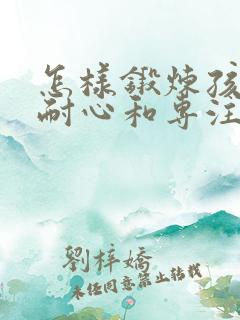 怎樣鍛煉孩
耐心和専注
劉梓嬌
未经同意禁止转载